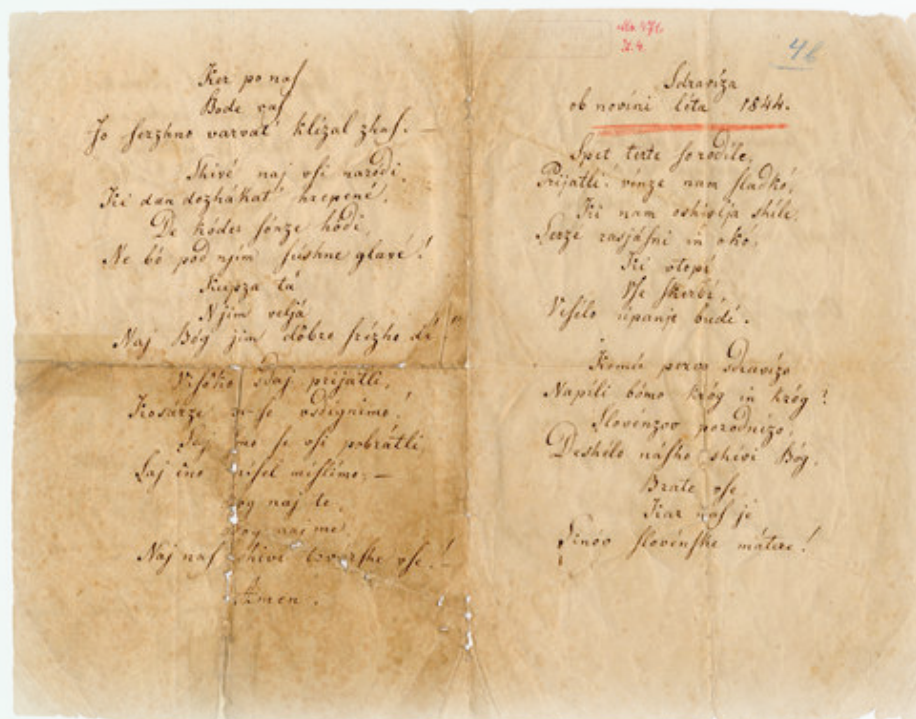 Ker po naſ
Bode vaſ
Jo ſerzhno varvat' klizal zhaſ. —
Shivé naj vſi naródi,
Ki dan dozhákat' hrepené,
De kóder ſónze hódi,
Ne bó pod njim ſúshne glavé!
Kupza tá
Njim veljá
Naj Bóg jim dóbro ſrézho dá!
Viſóko sdaj prijatli,
Kosárze ſe vsdignimo!
Saj ſmo ſe vſi pobrátli,
Saj éno miſlimo; —
naj te,
naj me
Naj naſ shivi továrſhe vſe!
Amen.
No. 471
4b
Sdraviza
ob novini léta 1844.
Spet terte ſo rodile,
Prijatli! vinze nam ſladkó,
Ki nam oshivlja shile,
Serze rasjáſni in okó,
Ki vtopi
Vſe ſkerbi,
Veſélo úpanje budi.
Komú pervo sdravizo
Napili bómo króg in króg?
Slovénzov porodnizo,
Deshélo náſho shivi Bóg,
Brate vſe,
Kar naſ je
Sinov ſlovénſke mátere!